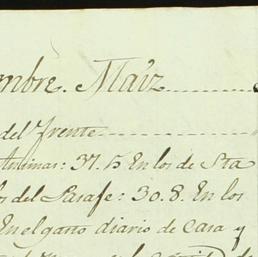 mbre. Maiz
del frente
Animas: 37. 15 En los de Sta
os del Parafe: 30. 8. En los
En el gasto diario de Casa y